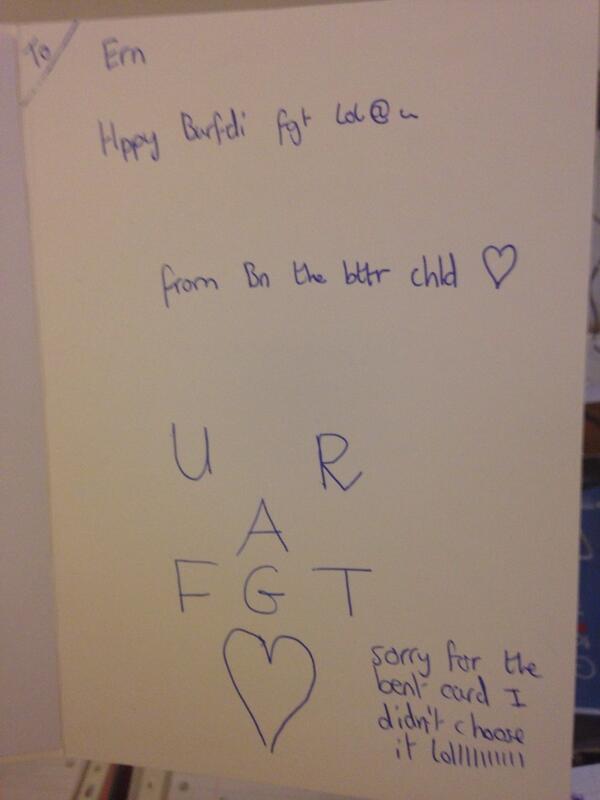 To
Ern
Hppy Burfdi fgt lol@u
from Bn the bttr chld
U R
A
FGT
sorry for the
bent card I
didn't choose
it lolllllllllll